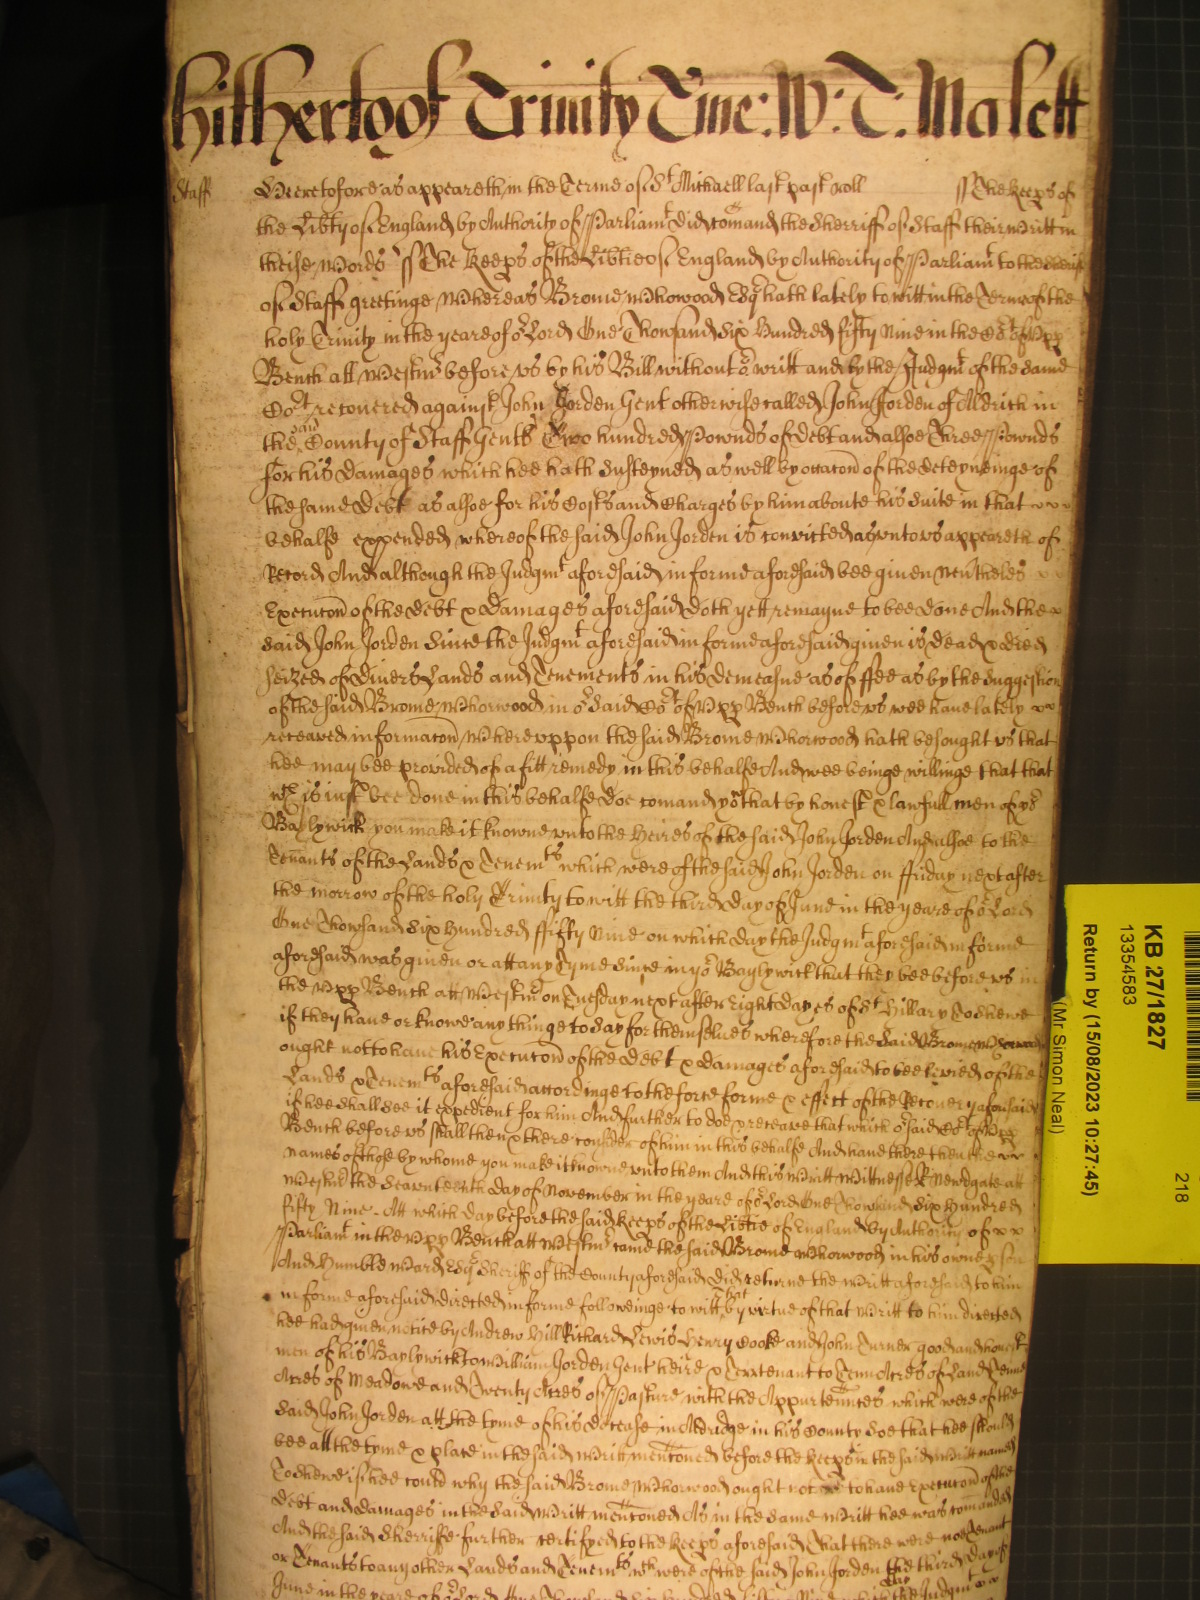 Hitherto of Trinity Tme: W: T: Malett
Staff Heretofore as appeareth in the Terme of St Michaell last past Roll ss The Keeps of
the Libty of England by Authority of Parliamt did comand the Sherriff of Staff their writt in
theise words ss The Keeps of the Libtie of England by Authority of Parliamt to the Sherriff
of Staff greetinge Whereas Brome Whorwood Esqr hath lately to witt in the Terme of the
holy Trinity in the yeare of or Lord One Thowsand Six Hundred fifty Nine in the Cort of Upp
Bench att Westmr before us by his Bill without or writt and by the Judgmt of the same
Cort recovered against John Jorden Gent otherwise called John Jorden of Aldrich in
the said County of Staff Gent Two hundred Pownds of Debt and alsoe Three Pownds
for his Damages which hee hath Susteyned as well by occacon of the deteyneinge of
the same Debt as alsoe for his Costs and Charges by him aboute his Suite in that
behalfe expended whereof the said John Jorden is convicted as unto us appeareth of
Record And although the Judgmt aforesaid in forme aforesaid bee given nevtheles
Execucon of the debt & Damages aforesaid doth yett remayne to bee done And the
said John Jorden Since the Judgmt aforesaid in forme aforesaid given is dead & died
Seized of divers Lands and Tenements in his demeasne as of ffee as by the Suggestion
of the said Brome Whorwood in or said Cort of Upp Bench before us wee have lately
receaved informacon Whereuppon the said Brome Whorwood hath besought us that
hee may bee provided of a fitt remedy in this behalfe And wee beinge willinge that that
wch is just bee done in this behalfe doe comand yor that by honest & lawfull men of yor
Baylywick you make it knowne unto the Heires of the said John Jorden And alsoe to the
Tenants of the Lands & Tenemts which were of the said John Jorden on ffriday next after
the morrow of the holy Trinity to witt the third day of June in the yeare of or Lord
One Thowsand Six Hundred ffifty Nine on which day the Judgmt aforesaid in forme
aforesaid was given or att any tyme since in yor Baylywick that they bee before us in
the Upp Bench att Westmr on Tuesday next after Eight dayes of St Hillary To shewe
if they have or knowe any thinge to say for themselves wherefore the said Brome Whorwood
ought not to have his Execucon of the Debt & Damages aforesaid to bee levied of the
Lands & Tenemts aforesaid accordinge to the force forme & effect of the Recovery aforesaid
if hee shall see it expedient for him And further to doe & receave that which or said Cort of Upp
Bench before us shall then & there consider of him in this behalfe And have there then the
names of those by whome you make it knowne unto them And this Writt Wittnesse R Newdgate att
Westmr the Seaventeenth day of November in the yeare of or Lord One Thowsand Six Hundred
fifty Nine - Att which day before the said Keeps of the Libtie of England by Authority of
Parliamt in the Upp Bench att Westmr came the said Brome Whorwood in his owne pson
And Humble Ward Esqr Sheriff of the County aforesaid did returne the Writt aforesaid to him
in forme aforesaid directed in forme followeinge to witt that by virtue of that Writt to him directed
hee had given notice by Andrew Hill Richard Lewis Henry Cooke and John Turner good and honest
men of his Baylywick to William Jorden Gent heire & Terrtenant to Tenn Acres of Land Tenne
Acres of Meadowe and Twenty Acres of Pasture with the Appurtennces which were of the
said John Jorden att the tyme of his decease in Aldridge in his County Soe that hee should
bee att the tyme & place in the said Writt mencioned before the Keeps in the said Writt named
To shewe if hee could why the said Brome Whorwood ought not to have Execucon of the
debt and damages in the said Writt mencioned As in the same Writt hee was comanded
And the said Sherriffe further certifyed to the Keeps aforesaid That there were noe Tenant
or Tenants to any other Lands and Tenemts wch were of the said John Jorden the third day of
June in the yeare of or Lord One Thowsand Six Hundred fifty Nine on which day the Judgmt
KB 27/1827
13354583
Return by (15/08/2023 10:27:45)
(Mr Simon Neal)
218